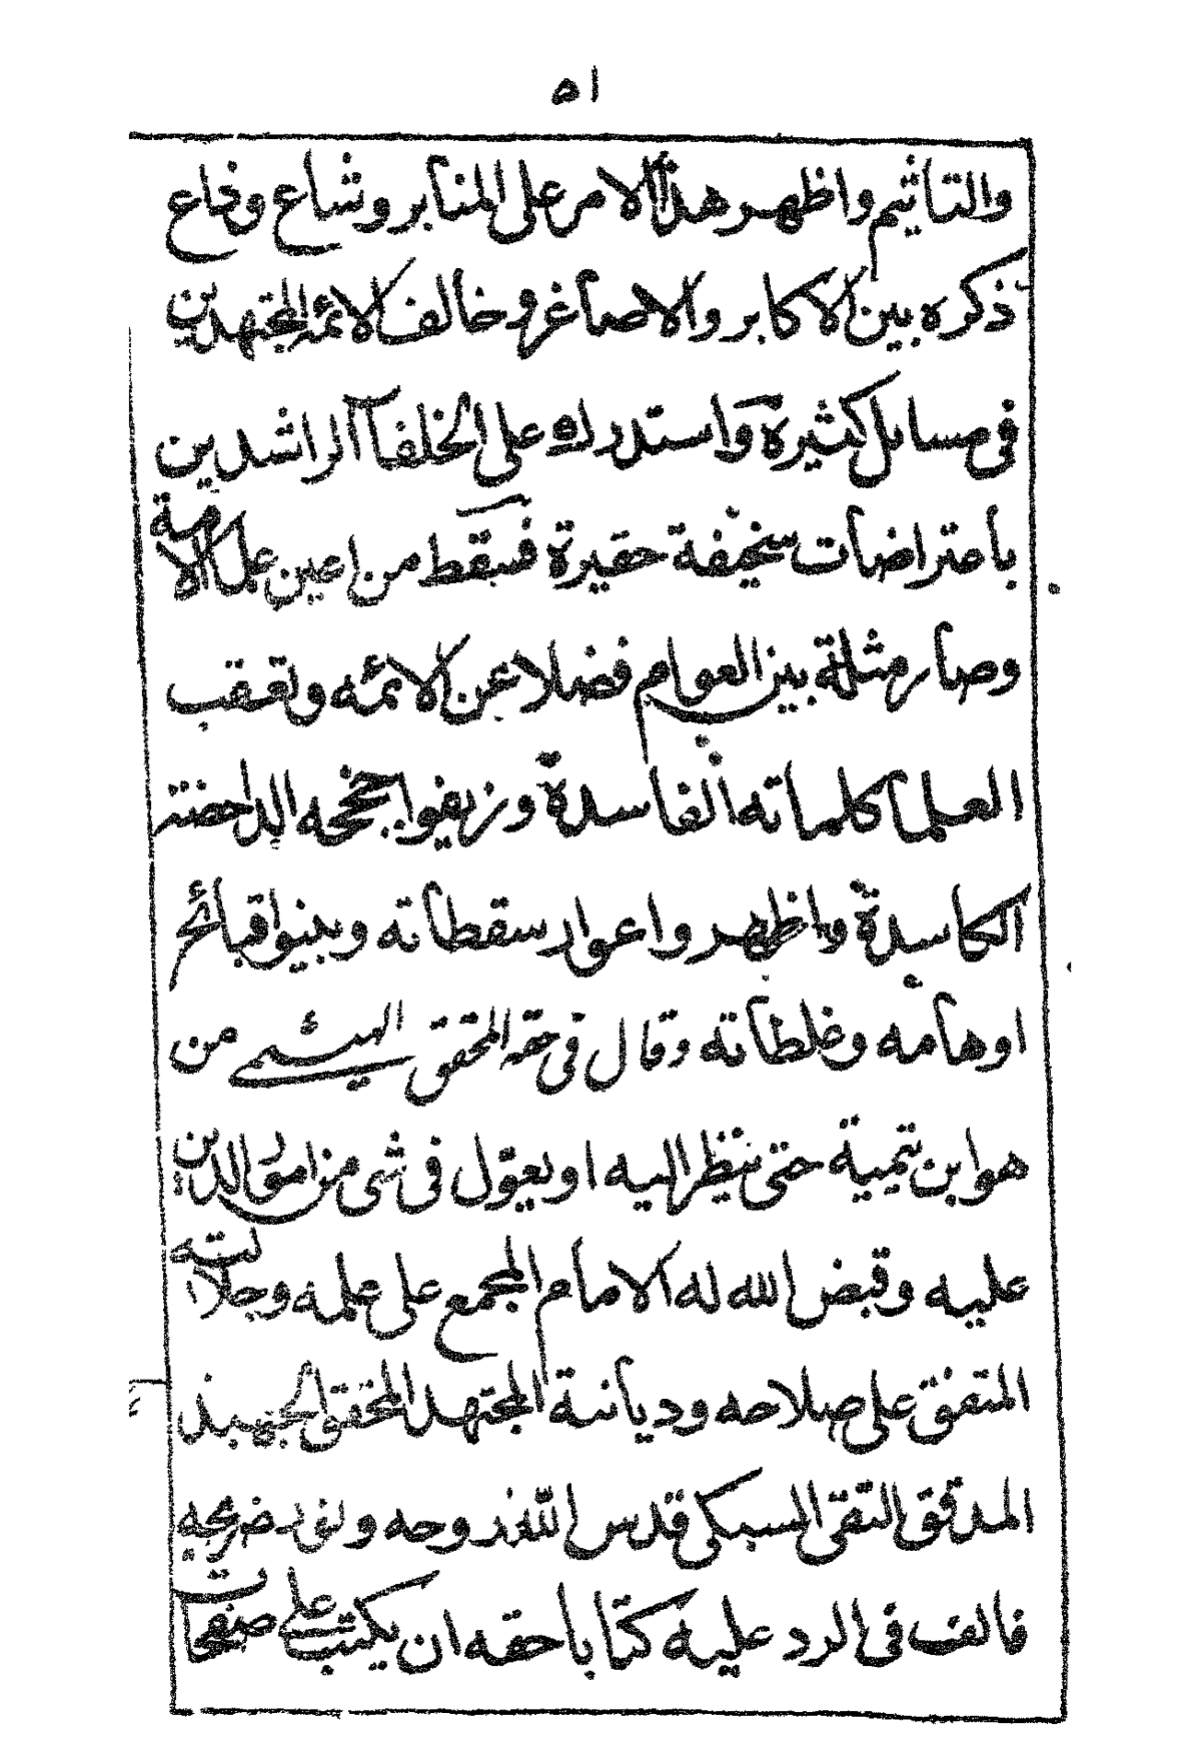 ٥١
والتاثيم واظهر هذا الامر على المنابر وشاع وذاع
ذكره بين الاكابر والاصاغر وخالف الائمه المجتهدين
فى مسايل كثيرة واستدرك على الخلفا الراشدين
باعتراضات سخيفة حقيرة فسقط من اعين علما الامة
وصار مثلة بين العوام فضلا عن الائمه وتعقب
العلما كلماته الفاسدة وزيفوا حججه الداحضة
الكاسدة واظهروا عوار سقطاته وبينوا قبائح
اوهامه وغلطاته وقال فى حقه المحقق الهيثمى من
هو ابن تيمية حتى ينظر اليه او يعول فى شى من امور الدين
عليه وقيض الله له الامام المجمع على علمه وجلالته
المتفق على صلاحه وديانته المجتهد المحقق الجهبذ
المدقق التقى السبكى قدس الله روحه ونور ضريحه
فالف فى الرد عليه كتابا حقه ان يكتب على صفحات